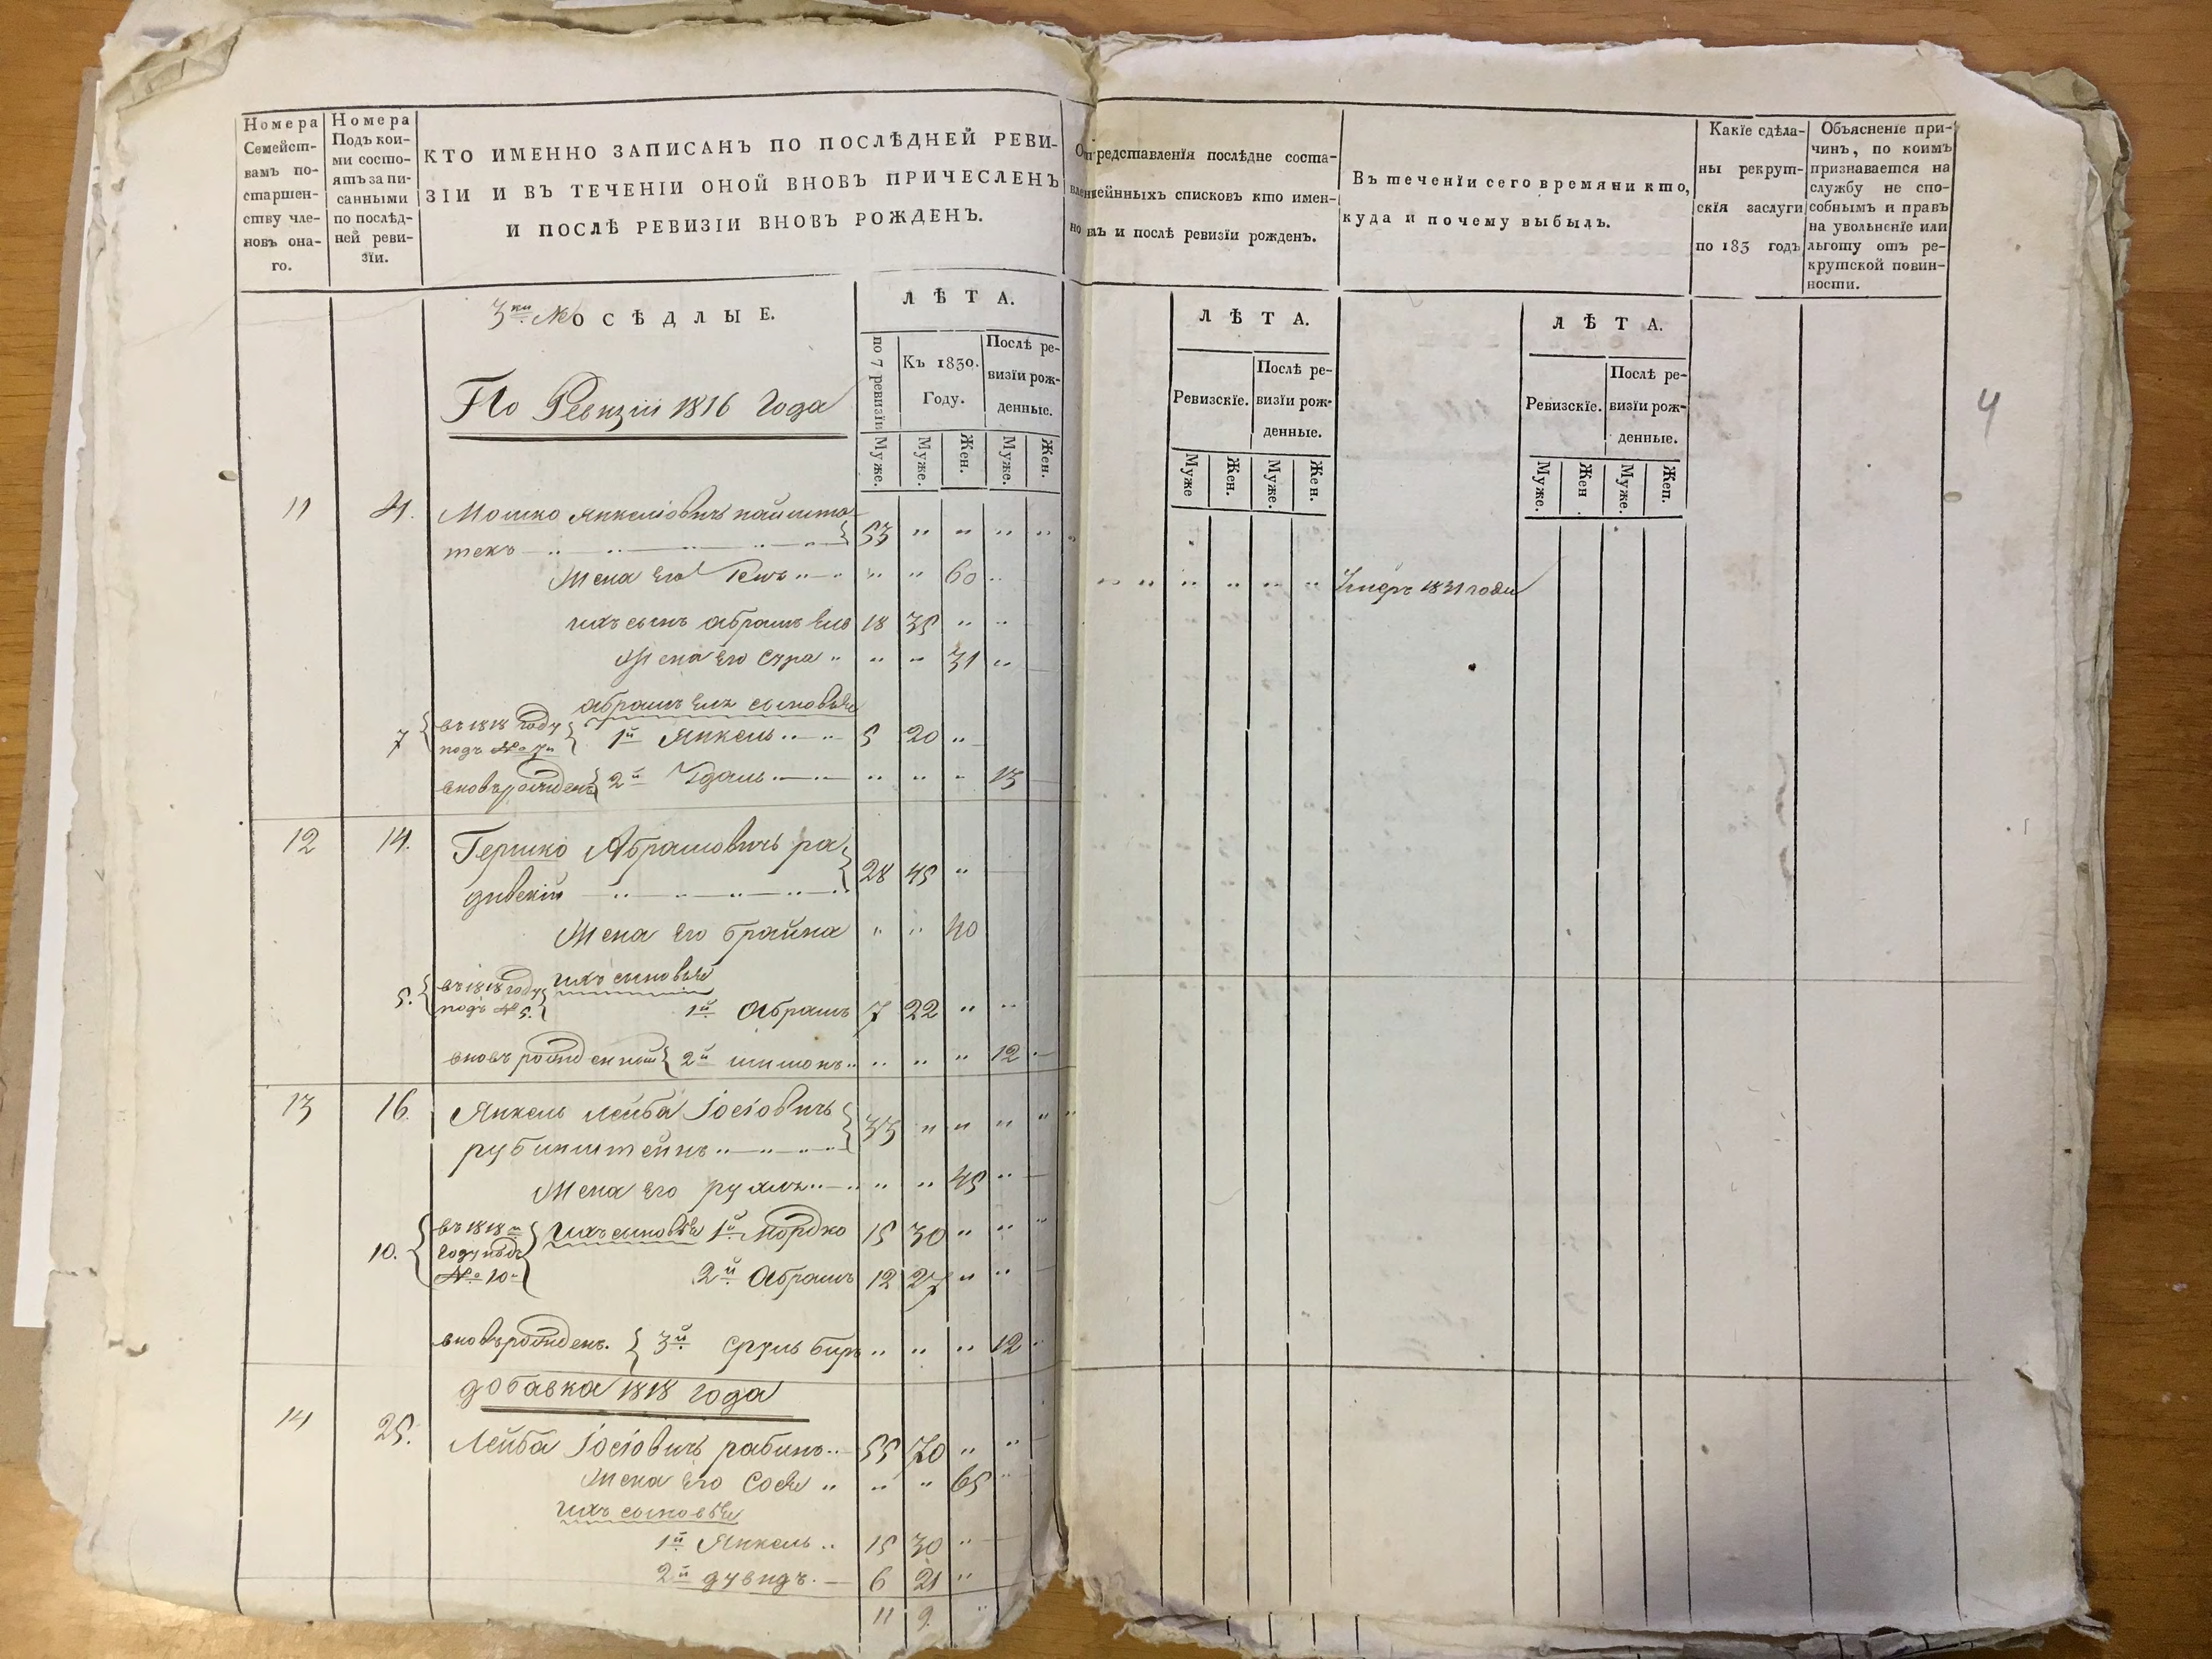 Номера
Семейст-
вамъ по-
старшен-
ству чле-
новъ она-
го.
Номера
Подъ кои-
ми состо-
ятъ запи-
санными
по послѣд-
ней реви-
зїи.
КТО ИМЕННО ЗАПИСАНЪ ПО ПОСЛѢДНЕЙ РЕВИ-
ЗІИ И ВЪ ТЕЧЕНІИ ОНОЙ ВНОВЬ ПРИЧЕСЛЕНЪ
И ПОСЛѢ РЕВИЗІИ ВНОВЬ РОЖДЕНЪ.
редставленїя послѣдне соста-
списковъ кто имен-
но и послѣ ревизїи рожденъ.
Въ теченїи сего времяни кто,
куда и почему выбылъ.
Какїе сдѣла-
ны рекрут-
скїя заслуги
по 183 годъ
Объясненїе при-
чинъ, по коимъ
признавается на
службу не спо-
собнымъ и правъ
на увольненїе или
льготу отъ ре-
крутской повин-
ности.
ОСѢДЛЫЕ.
ЛѢТА.
по 7 ревизїи
Къ 1830.
Году.
Послѣ ре-
визїи рож-
денные.
Муже. Муже. Жен. Муже. Жен.
ЛѢТА.
Ревизскїе.
Послѣ ре-
визїи рож-
денные.
Муже Жен. Муже. Жен.
ЛѢТА.
Ревизскїе.
Послѣ ре-
визїи рож-
денные.
Муже. Жен Муже. Жен.
4
По Ревизіи 1816 Года
11 4. Мошко Янкеліовичъ
53
Жена Его 60
ихъ сынъ абрамъ Ель 18 35
Жена Его Сура 31
абрамъЕля сыновья
7 въ 1818 году
подъ № 7 1й Янкель 5 20
вновърожденъ 2й Удаль 13
12 14. Гершко Абрамовичъ ра
дивскій 28 45
Жена Его брайна 40
5. въ 1818 году ихъ сыновья
подъ № 5. 1й Абрамъ 7 22
вновь рожденный 2й шимонъ 12
13 16. Янкель лейба Іосіовичъ
рубинштейнъ 33
Жена Его рухля 45
10. въ 1818м
Году подъ
№ 10 ихъ сыновья 1й Мордко 15 30
2й Абрамъ 12 27
вновърожденъ. 3й Сруль беръ 12
добавка 1818 года
14 25. Лейба Іосіовичъ рабинъ 55 70
Жена Его Сося 65
ихъ сыновья
1й Янкель 15 30
2й дувидъ. 6 21
11 9.